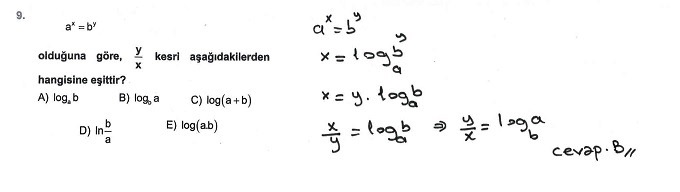 9.
aˣ = bʸ
olduğuna göre, y/x kesri aşağıdakilerden
hangisine eşittir?
A) logₐ b B) log_b a C) log(a+b)
D) ln b/a E) log(a.b)
aˣ = bʸ
x = logₐ bʸ
x = y . logₐ b
x/y = logₐ b ⇒ y/x = log_b a
cevap. B //